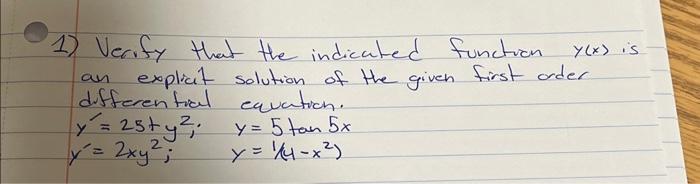 1) Verify that the indicated function y(x) is
an explicit solution of the given first order
differential equation.
y' = 25 + y²; y = 5 tan 5x
y' = 2xy²; y = 1/(4-x²)